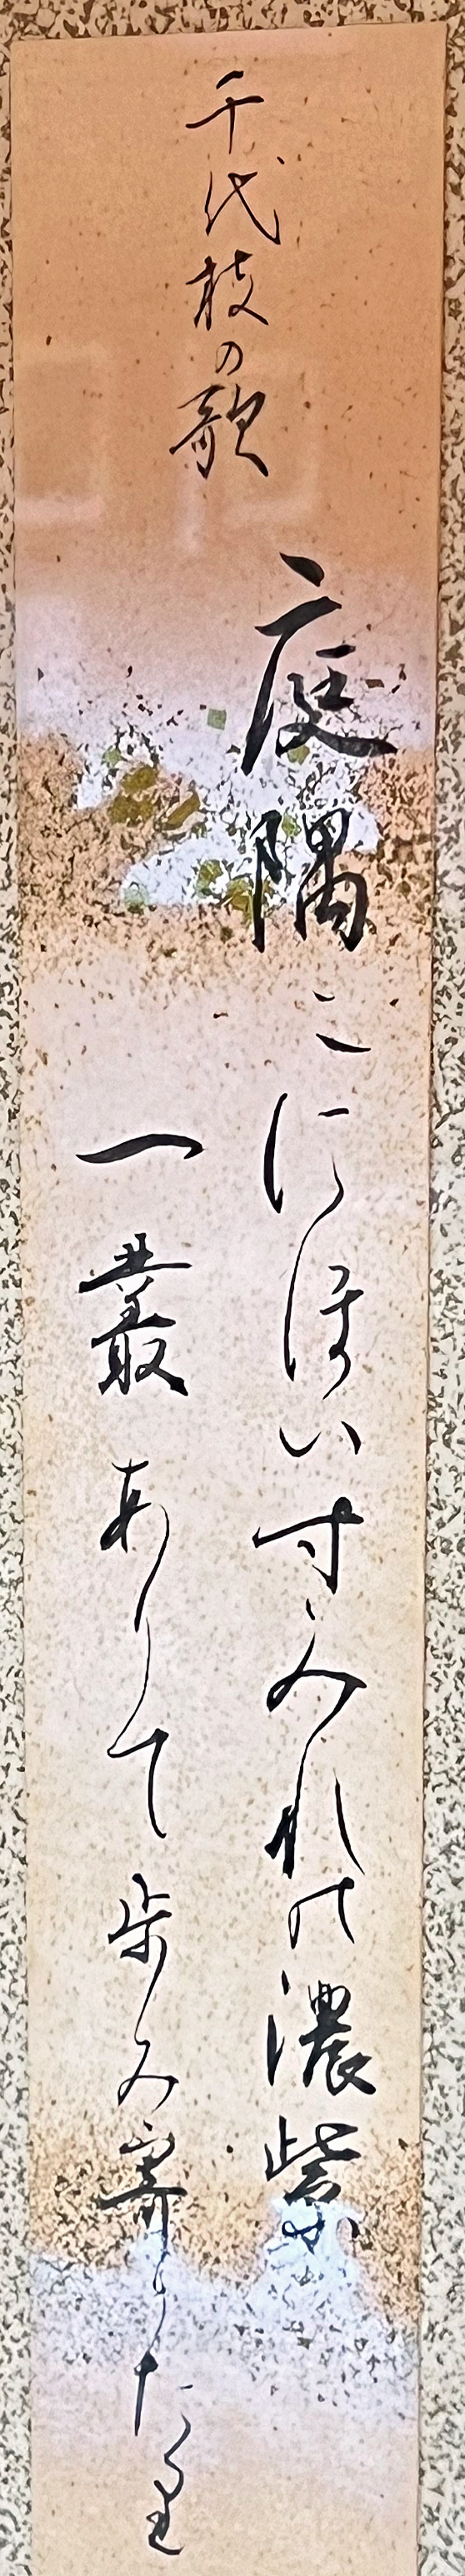 千代枝の歌
庭隅ににほいすみれの濃紫
一叢ありて歩み寄りたり